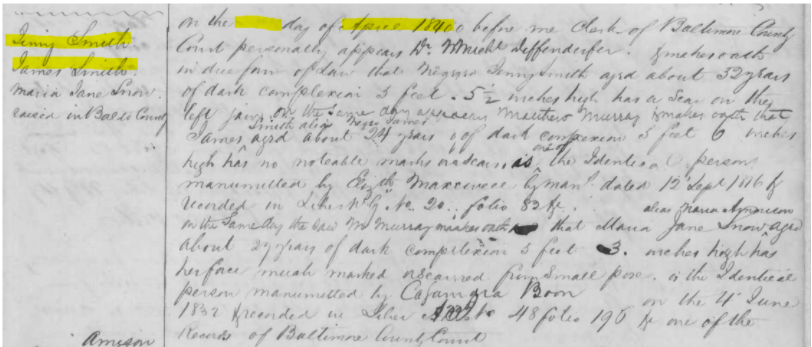 Jenny Smith
James Smith
Maria Jane Snow
raised in Balto County
on the day of April 1840 before me Clerk of Baltimore County
Court personally appears Dr. Michl Diffenderfer & makes oath
in due form of Law that Negroes Jenny Smith aged about 32 years
of dark complexion 5 feet 5½ inches high has a Scar on the
left jaw, on the same day appears Matthew Murray & makes oath that
Smith alias Negro James
James aged about 24 years of dark complexion 5 feet 6 inches
high has no noteable marks or scars is one of the Identical persons
manumitted by Elizth by man. dated 12 Sept 1816 &
recorded in Liber W.G. No. 20.. folio 82 &.
alias Maria Amieson
on the Same day the said M. Murray makes oath that Maria Jane Snow aged
about 27 years of dark complexion 5 feet 3. inches high has
her face much marked or scarred from Small pox. is the Identical
person manumitted by Cassandra Boon on the 4th June
1832 & recorded in Liber 48 folio 190 & one of the
Records of Baltimore County Court
Amieson